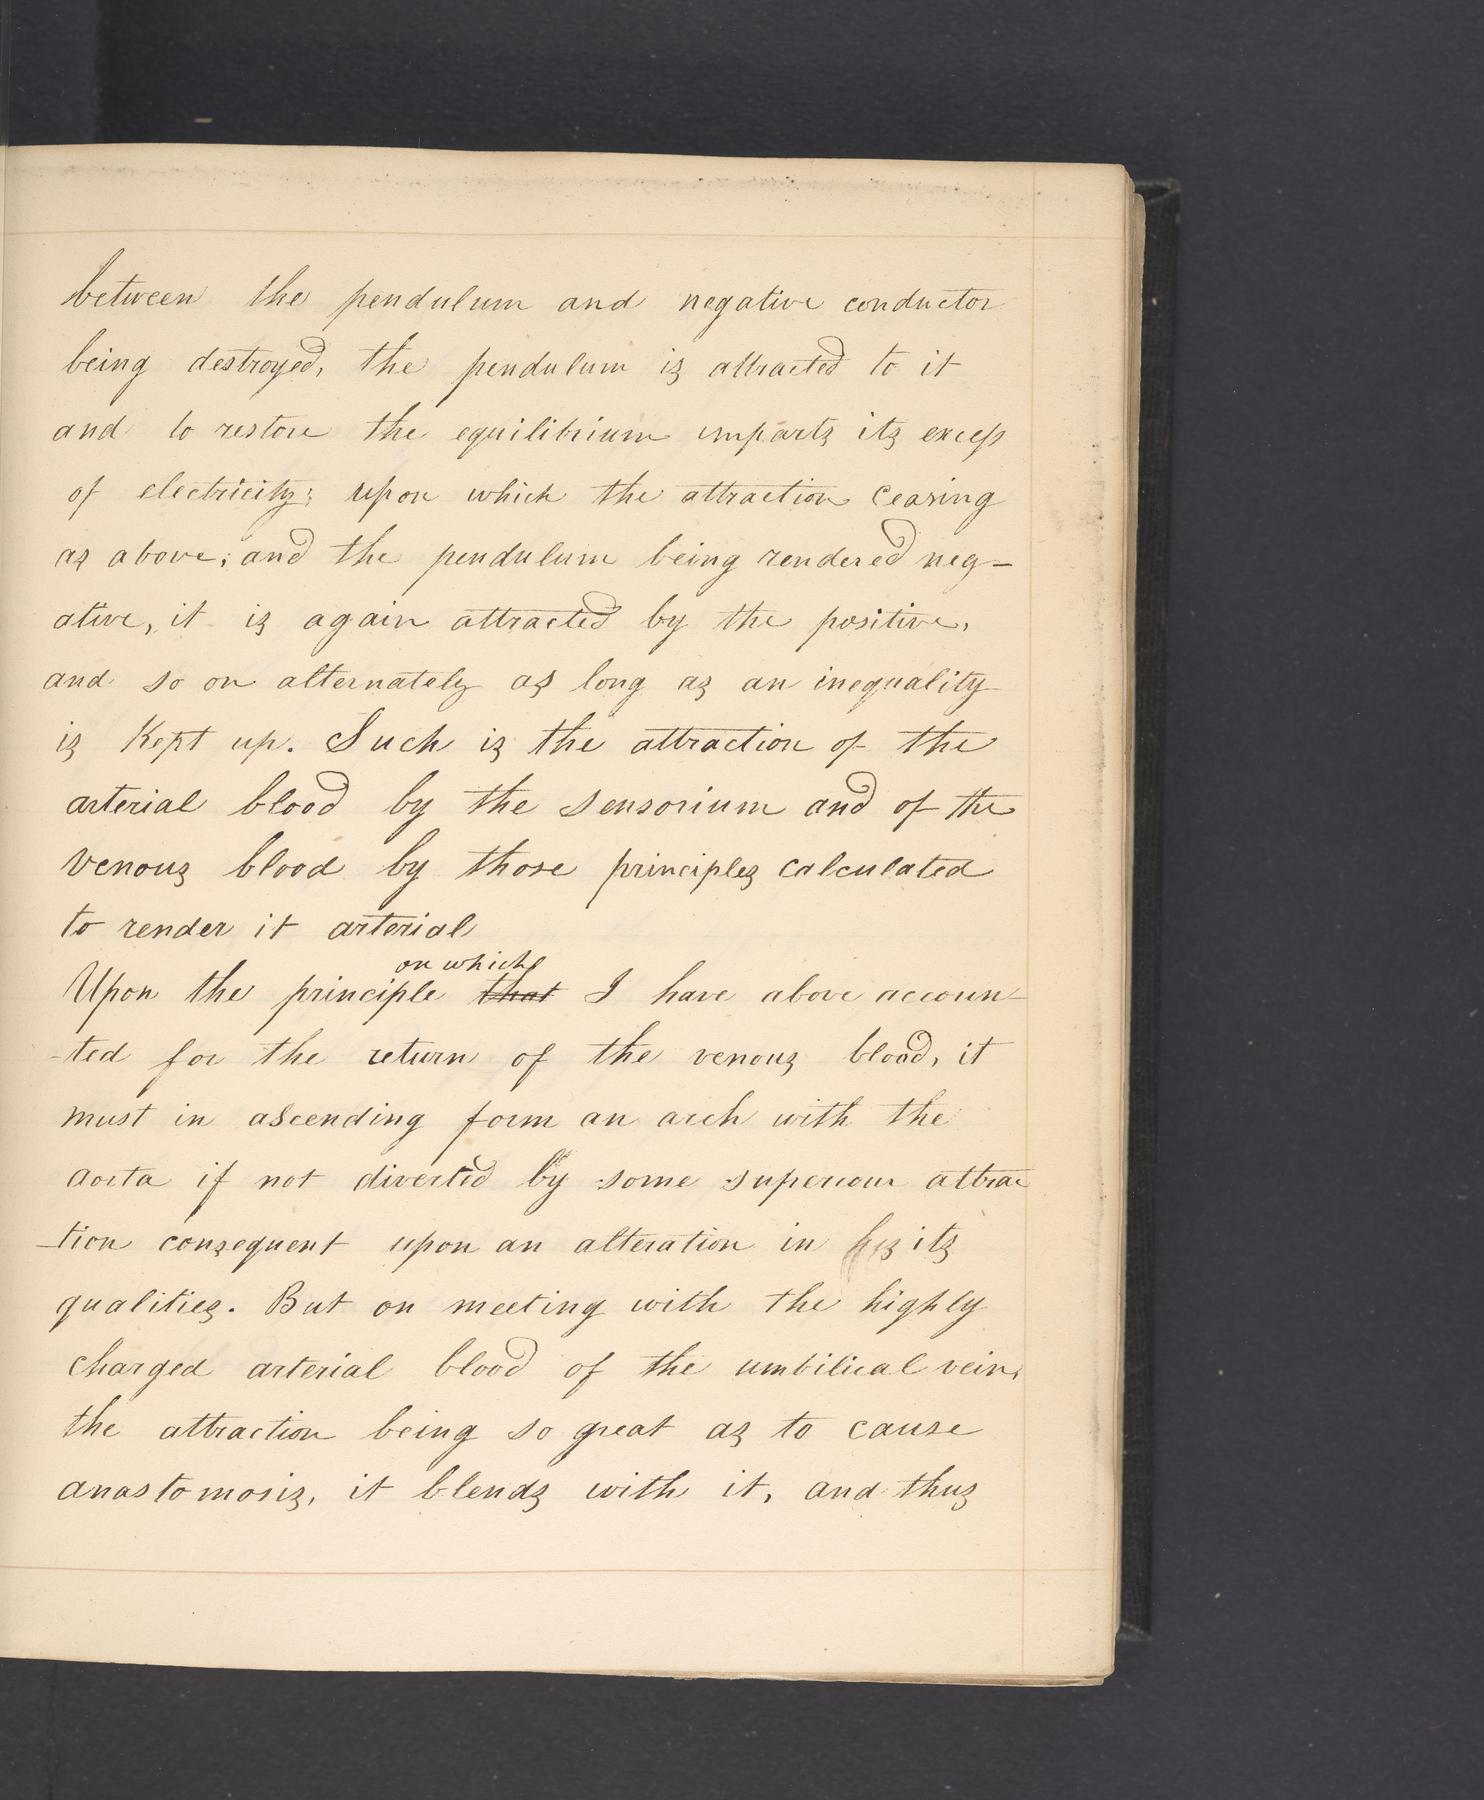 between the pendulum and negative conductor
being destroyed, the pendulum is attracted to it
and to restore the equilibrium imparts its excess
of electricity; upon which the attraction ceasing
as above; and the pendulum being rendered neg-
ative, it is again attracted by the positive,
and so on alternately as long as an inequality
is Kept up. Such is the attraction of the
arterial blood by the sensorium and of the
venous blood by those principles calculated
to render it arterial
on which
Upon the principle that I have above accoun-
-ted for the return of the venous blood, it
must in ascending form an arch with the
aorta if not diverted by some superiour attrac
-tion consequent upon an alteration in its
qualities. But on meeting with the highly
charged arterial blood of the umbilical vein,
the attraction being so great as to cause
anastomosis, it blends with it, and thus